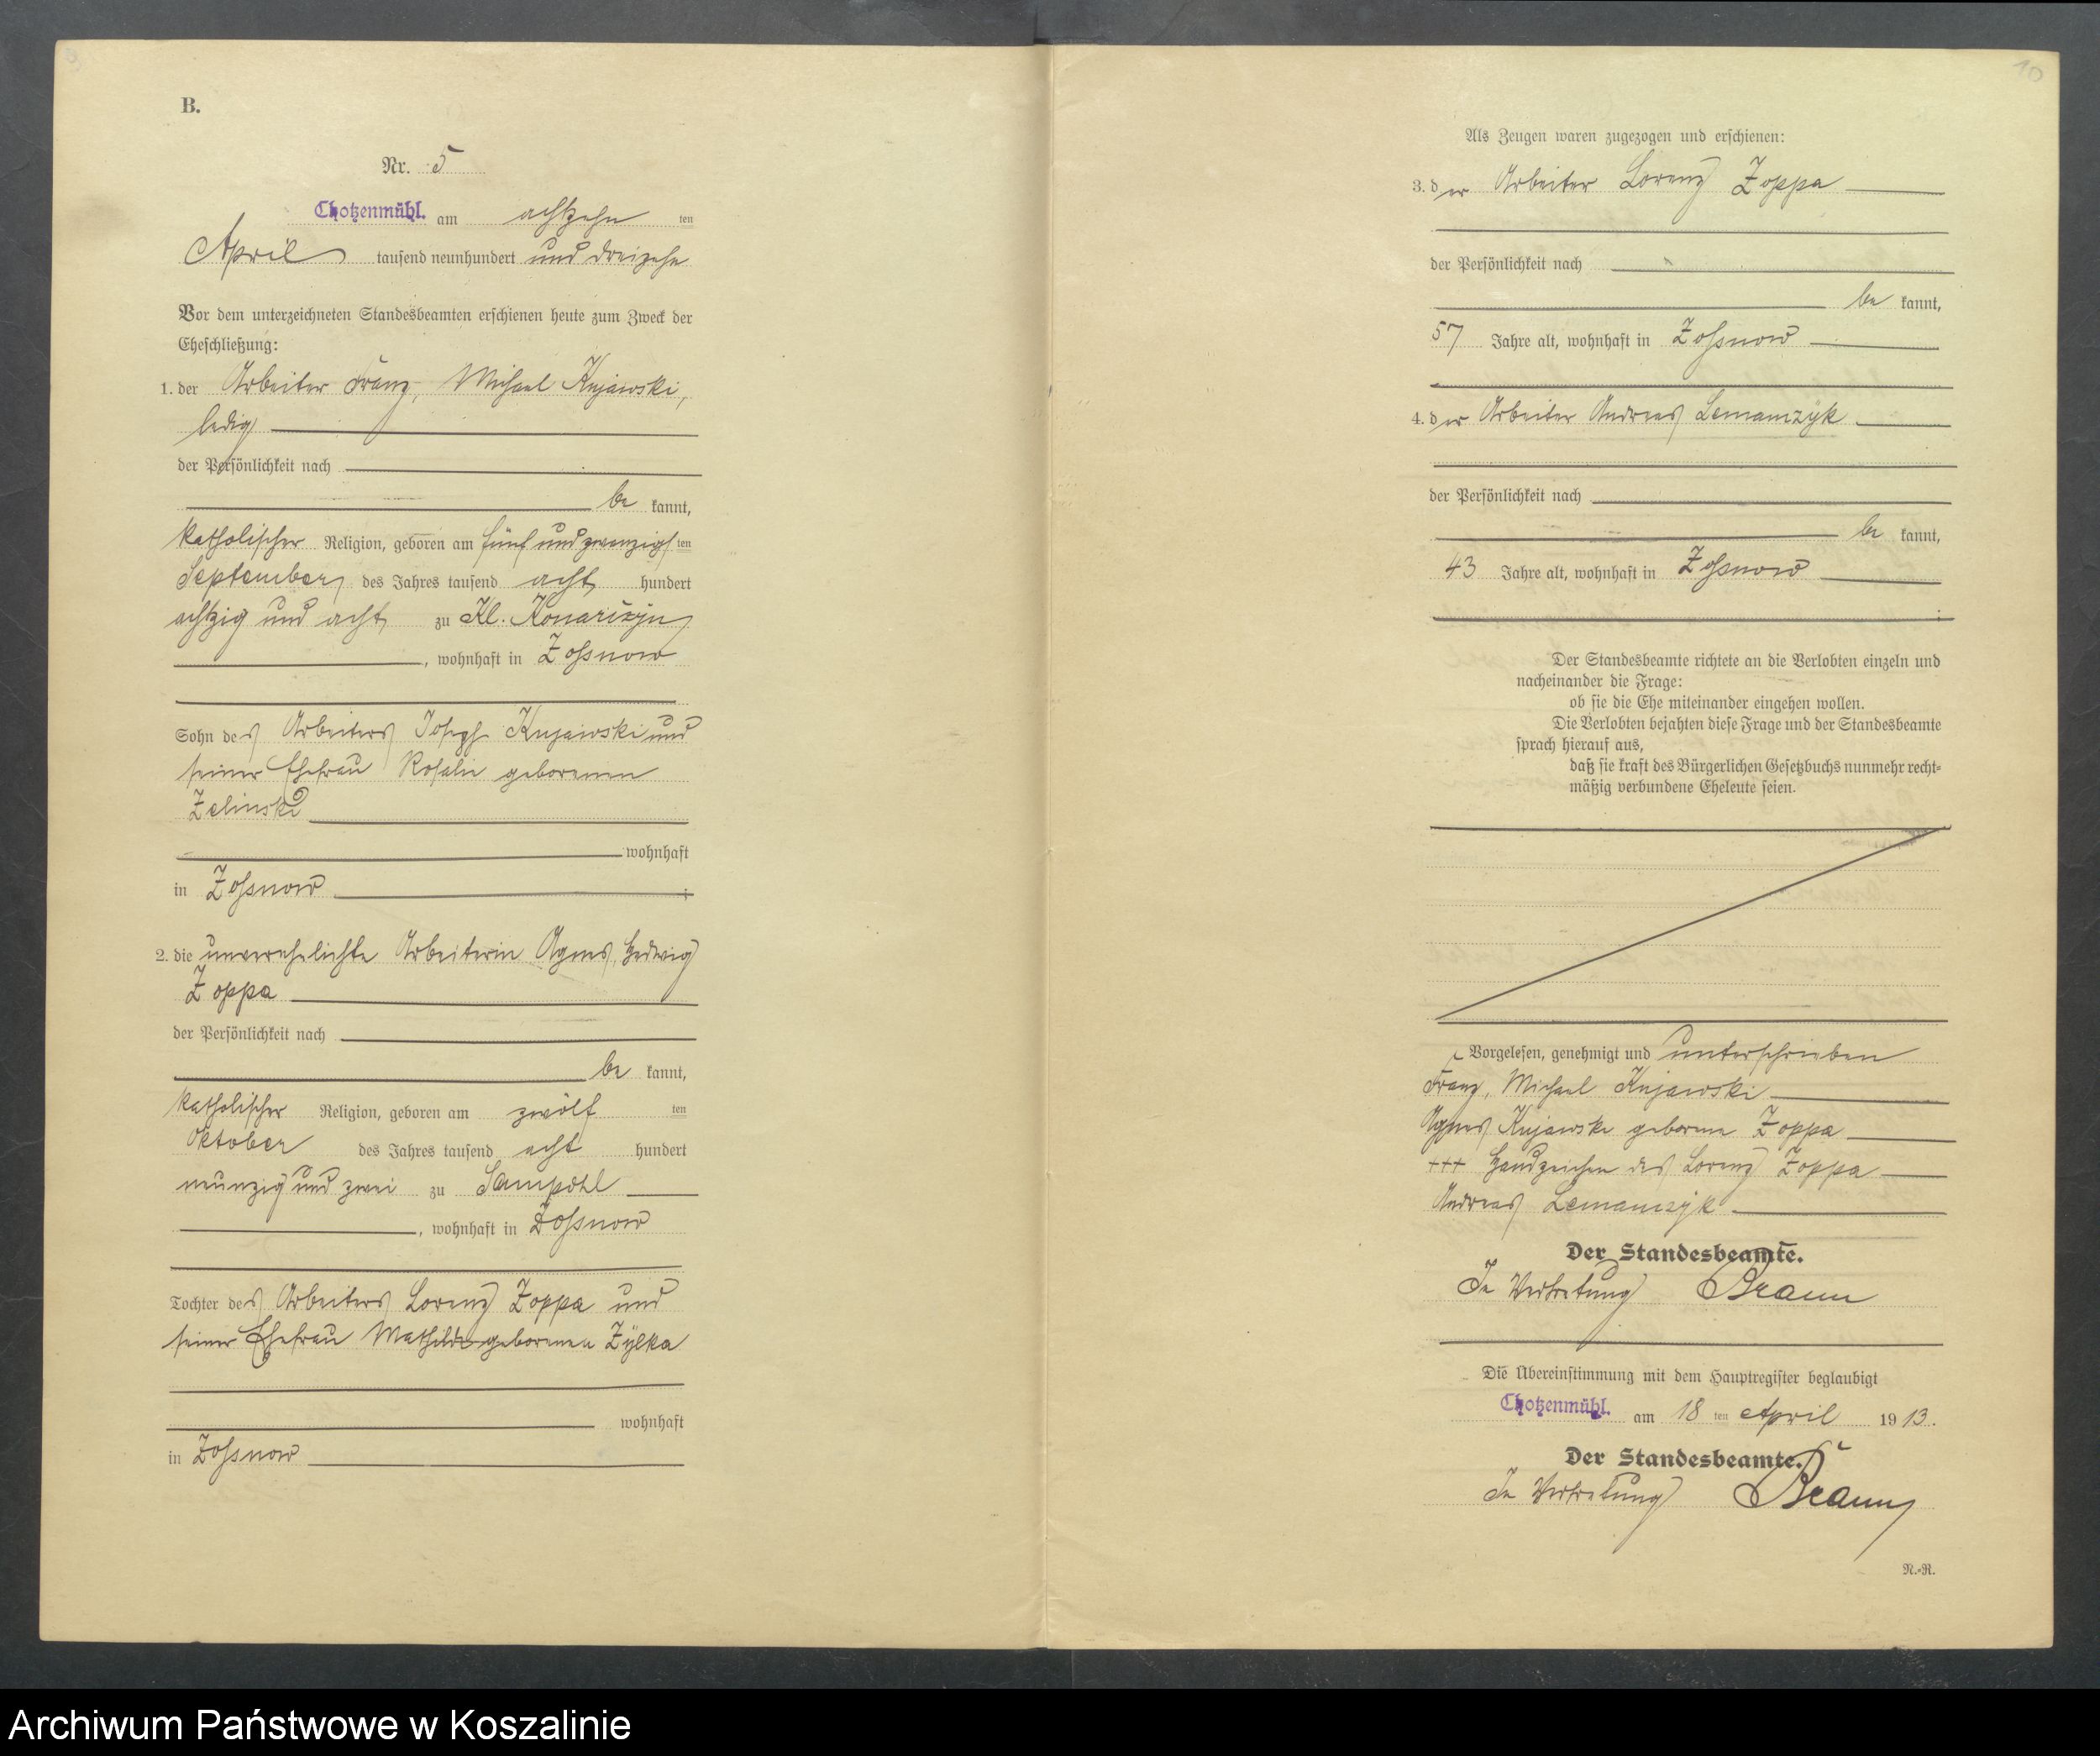 B.
Nr. 5
Chotzenmühl. am achtzehn ten
April tausend neunhundert und dreizehn
Vor dem unterzeichneten Standesbeamten erschienen heute zum Zweck der
Eheschließung:
1. der Arbeiter Franz, Michael Kujawski,
ledig
der Persönlichkeit nach
be kannt,
katholischer Religion, geboren am fünf und zwanzigs ten
September des Jahres tausend acht hundert
achtzig und acht zu Kl. Konarczyn
, wohnhaft in Zossnow
Sohn des Arbeiters Joseph Kujawski und
seiner Ehefrau Rosalie geborenen
Zelinski
wohnhaft
in Zossnow ;
2. die unverehelichte Arbeiterin Agnes, Hedwig
Zoppa
der Persönlichkeit nach
be kannt,
katholischer Religion, geboren am zwölf ten
Oktober des Jahres tausend acht hundert
neunzig und zwei zu Sampohl
, wohnhaft in Zossnow
Tochter des Arbeiters Lorenz Zoppa und
seiner Ehefrau Mathilde geborenen Zylka
wohnhaft
in Zossnow
10
Als Zeugen waren zugezogen und erschienen:
3. der Arbeiter Lorenz Zoppa
der Persönlichkeit nach
be kannt,
57 Jahre alt, wohnhaft in Zossnow
4. der Arbeiter Andreas Lemanczyk
der Persönlichkeit nach
be kannt,
43 Jahre alt, wohnhaft in Zossnow
.
Der Standesbeamte richtete an die Verlobten einzeln und
nacheinander die Frage:
ob sie die Ehe miteinander eingehen wollen.
Die Verlobten bejahten diese Frage und der Standesbeamte
sprach hierauf aus,
daß sie kraft des Bürgerlichen Gesetzbuchs nunmehr recht-
mäßig verbundene Eheleute seien.
Vorgelesen, genehmigt und unterschrieben
Franz, Michael Kujawski
Agnes Kujawske geborene Zoppa
+++ Handzeichen des Lorenz Zoppa
Andreas Lemanczyk
Der Standesbeamte.
In Vertretung Braun
Die Übereinstimmung mit dem Hauptregister beglaubigt
Chotzenmühl. am 18 ten April 1913.
Der Standesbeamte.
In Vertretung Braun
N.-R.
Archiwum Państwowe w Koszalinie